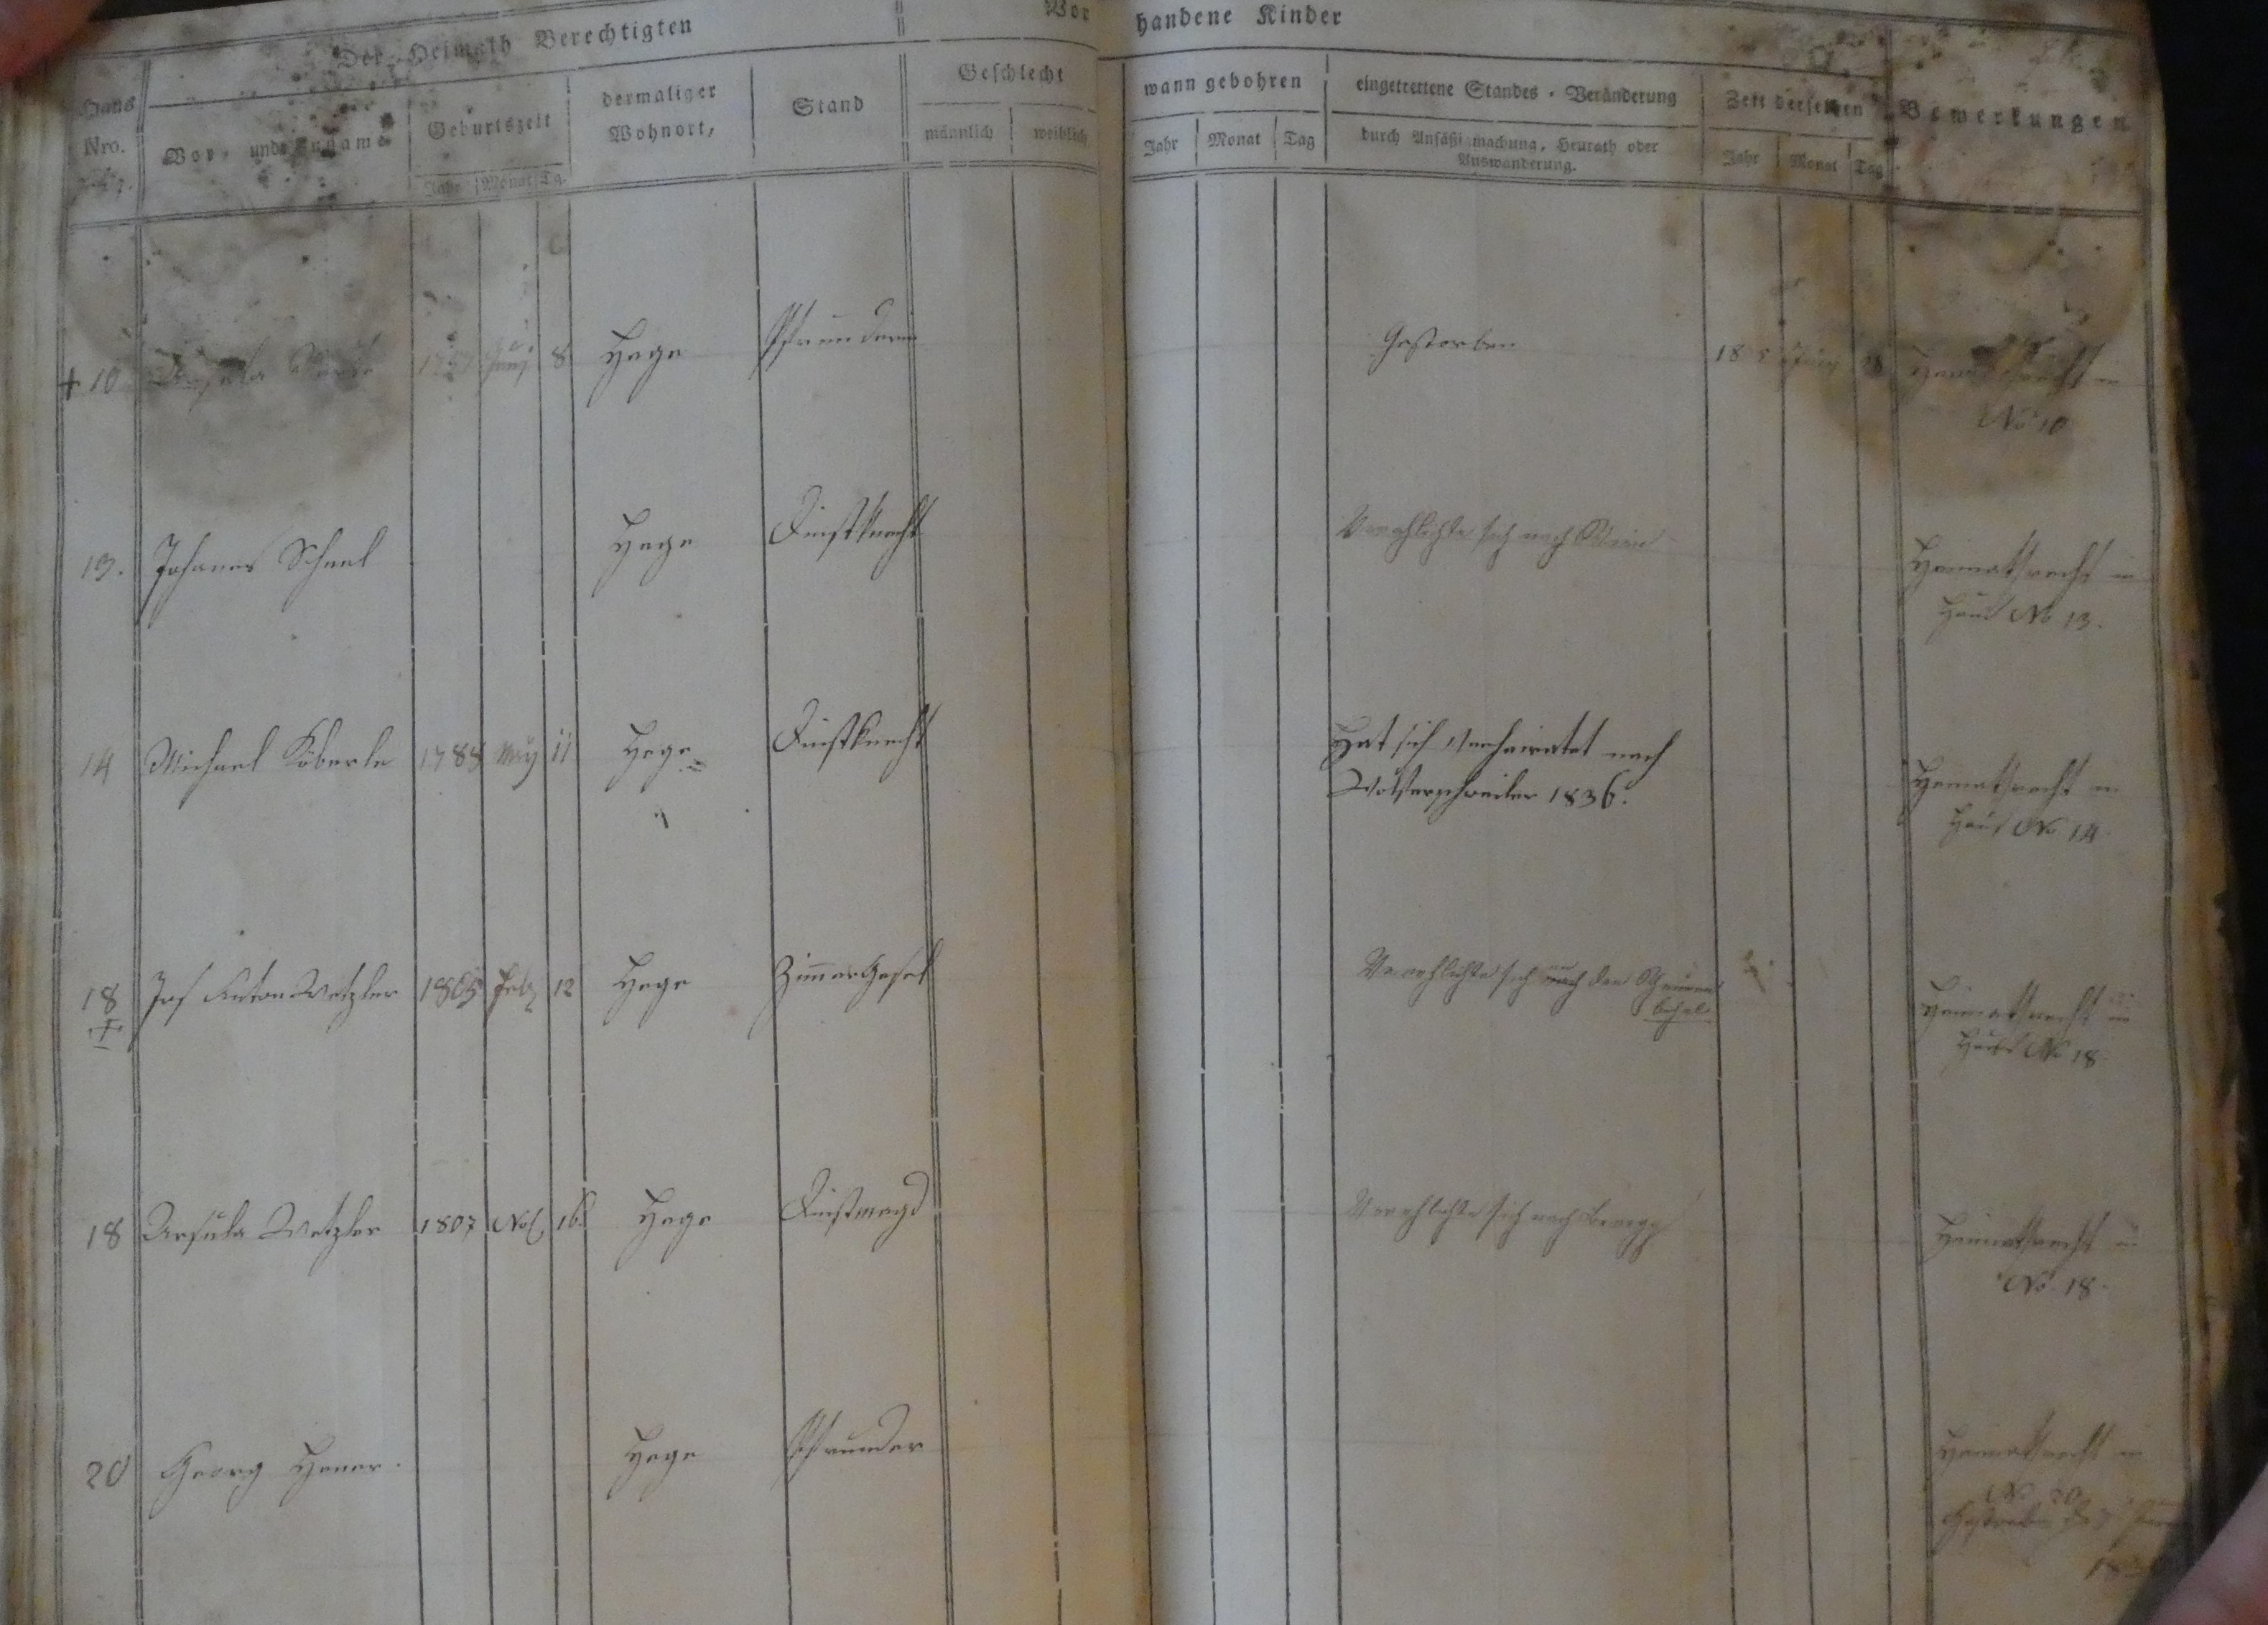 Der Heimath Berechtigten
Vorhandene Kinder
Haus Nro.
Vor- und Zuname
Geburtszeit
Jahr Monat Tg.
dermaliger Wohnort,
Stand
Geschlecht
männlich weiblich
wann gebohren
Jahr Monat Tag
eingetrettene Standes-Veränderung
durch Ansäßigmachung, Heurath oder
Auswanderung.
Zeit derselben
Jahr Monat Tag
Bemerkungen
+ 10 Ursula 8 Hege Pfründerin Gestorben Heimathsrecht in
No 10
13. Johanes Schnel Hege Dienstknecht Verehlichte sich nach Heimathsrecht in
Haus No 13.
14 Michael Köberle 1788 May 11 Hege Dienstknecht Hat sich Verheiratet nach Heimathsrecht in
1836. Haus No 14
18 Jos Anton Wetzler 1805 Feb 12 Hege Zimmer Gesel Verehlichte sich nach den Heimathsrecht in
+ Haus No 18
18 Ursula Wetzler 1807 Nof 16 Hege Dienstmagd Verehlichte sich nach Heimathsrecht in
No 18.
20 Georg Hege Pfründer Heimathsrecht in
No 20
Gestorben